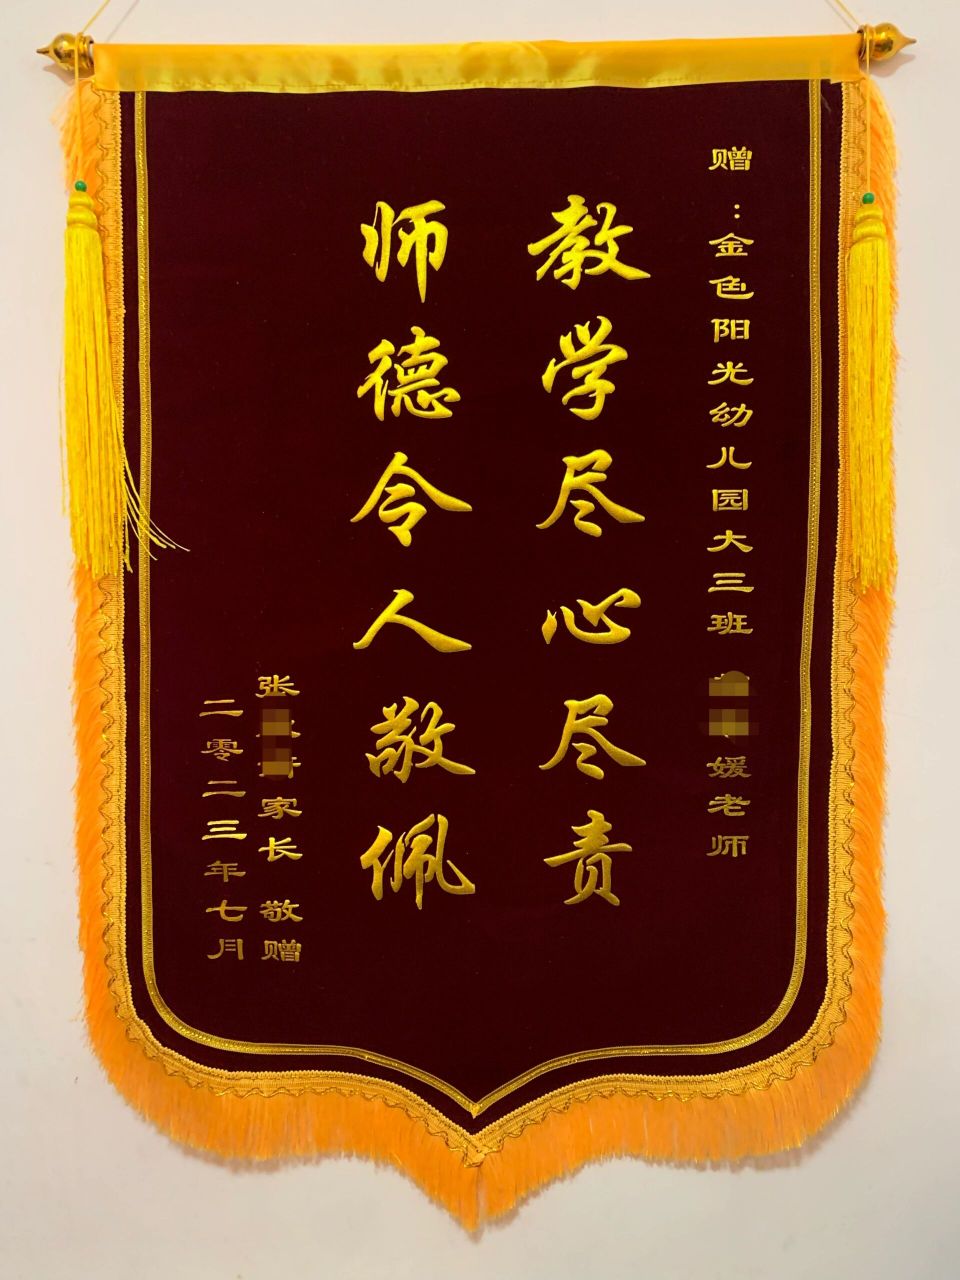 赠：金色阳光幼儿园大三班 媛老师
教学尽心尽责
师德令人敬佩
张 家长 敬赠
二零二三年七月